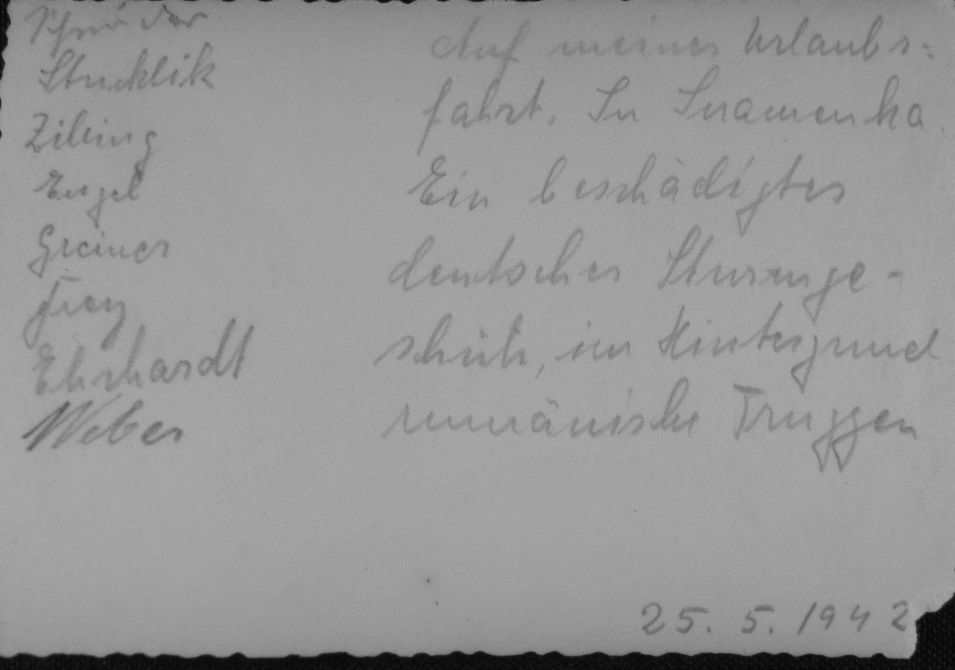 Schneider
Stucklik
Zibing
Engel
Greiner
Frey
Ehrhardt
Weber
Auf meiner Urlaubs-
fahrt. In Snamenka.
Ein beschädigtes
deutsches Sturmge-
schütz, im Hintergrund
rumänische Truppen
25. 5. 1942